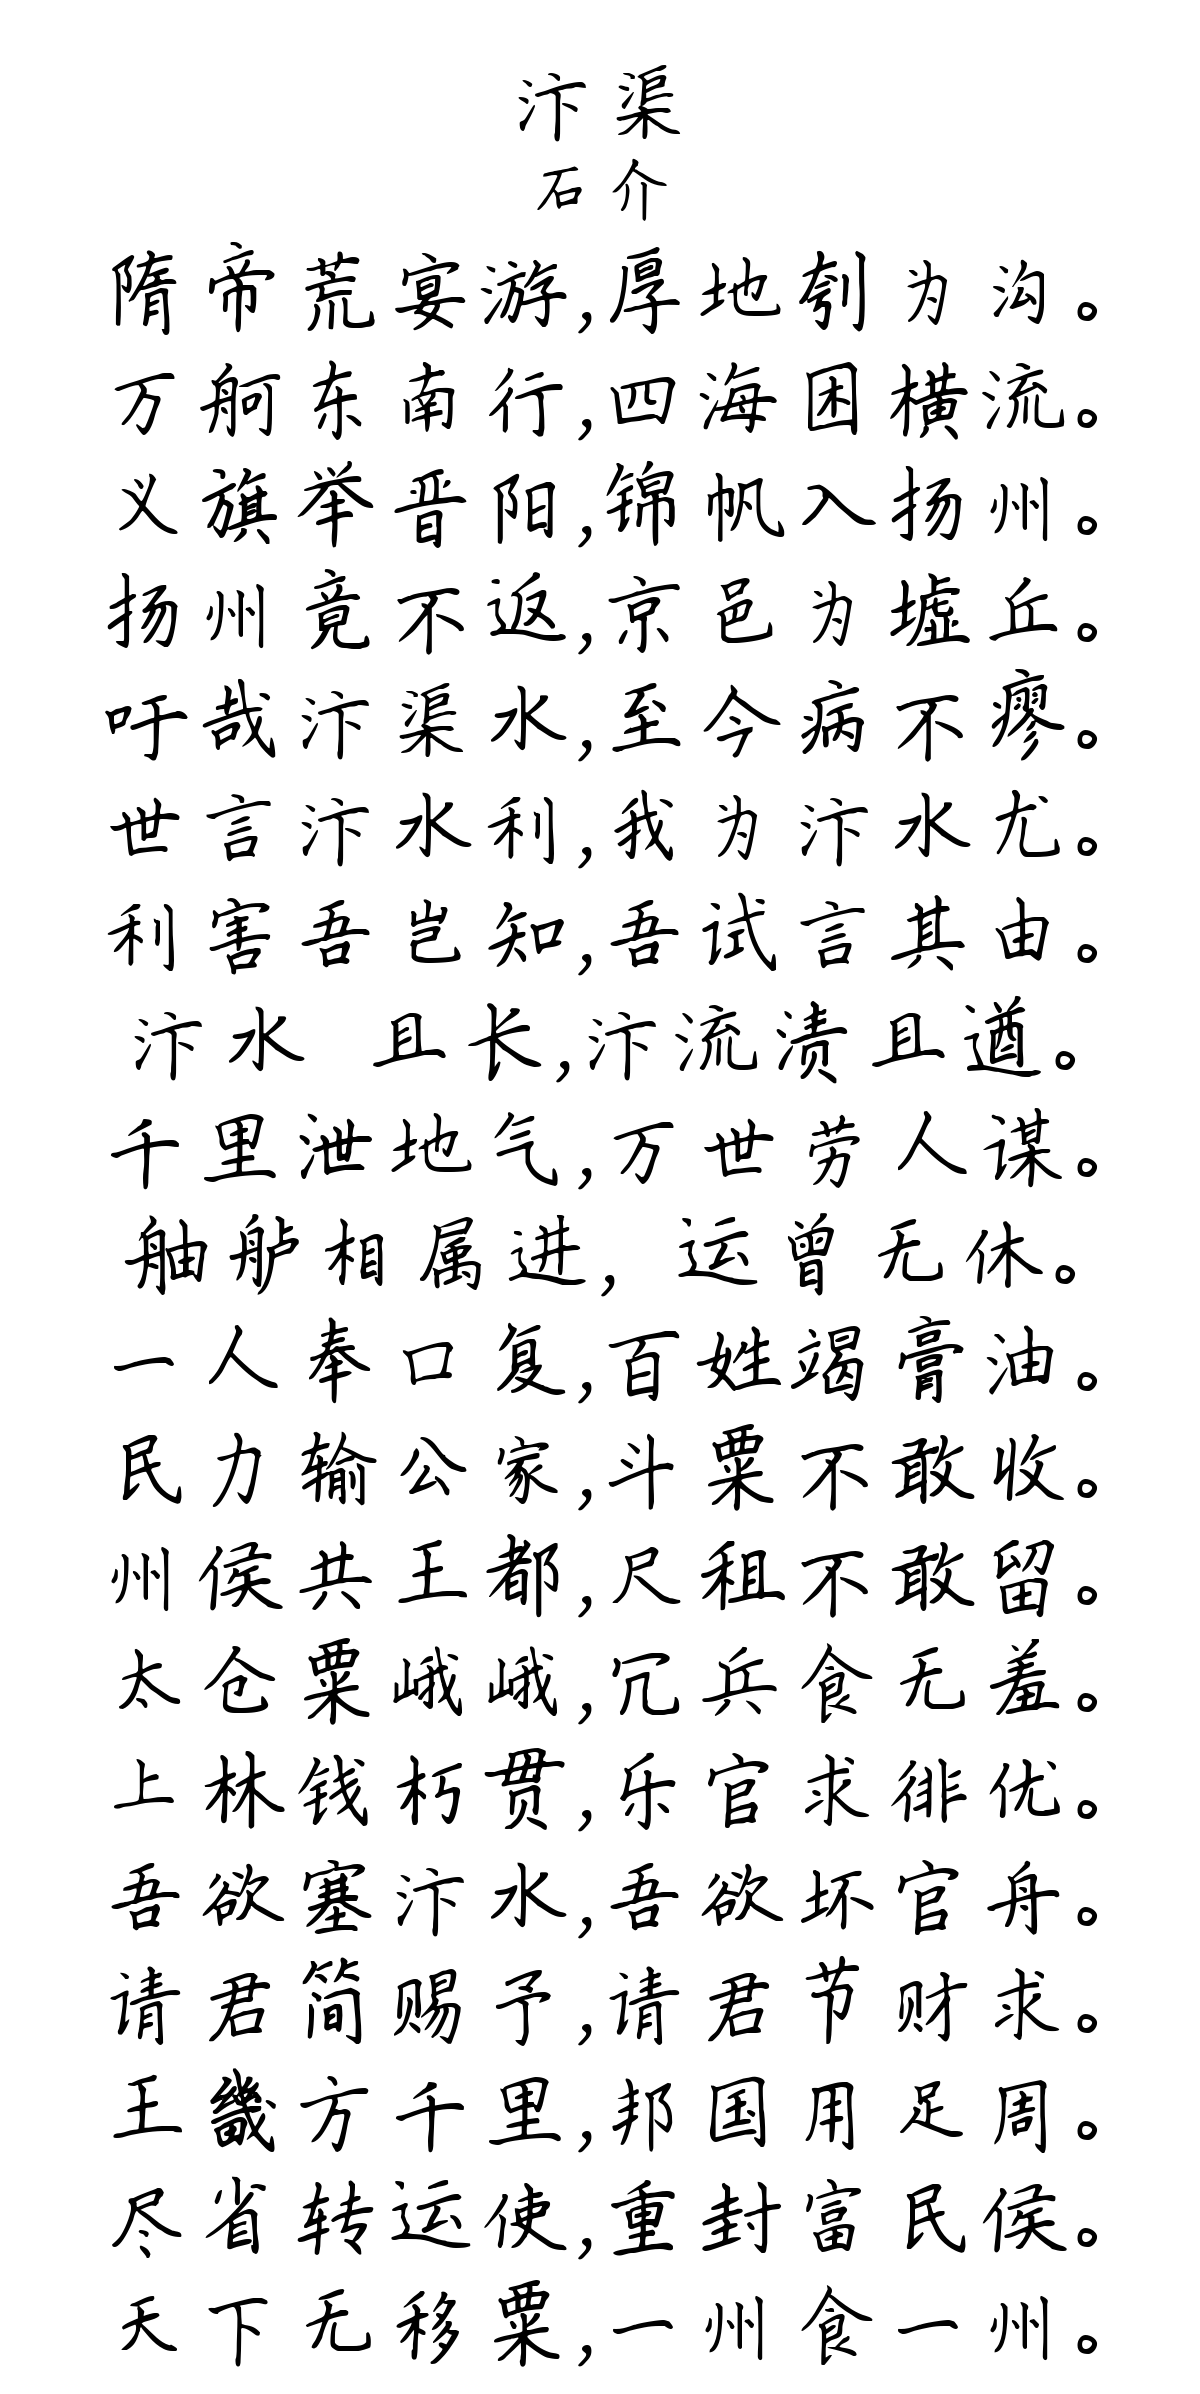 汴渠
石介
隋帝荒宴游,厚地刳为沟。
万舸东南行,四海困横流。
义旗举晋阳,锦帆入扬州。
扬州竟不返,京邑为墟丘。
吁哉汴渠水,至今病不瘳。
世言汴水利,我为汴水尤。
利害吾岂知,吾试言其由。
汴水 且长,汴流渍且遒。
千里泄地气,万世劳人谋。
舳舻相属进, 运曾无休。
一人奉口复,百姓竭膏油。
民力输公家,斗粟不敢收。
州侯共王都,尺租不敢留。
太仓粟峨峨,冗兵食无羞。
上林钱朽贯,乐官求徘优。
吾欲塞汴水,吾欲坏官舟。
请君简赐予,请君节财求。
王畿方千里,邦国用足周。
尽省转运使,重封富民侯。
天下无移粟,一州食一州。